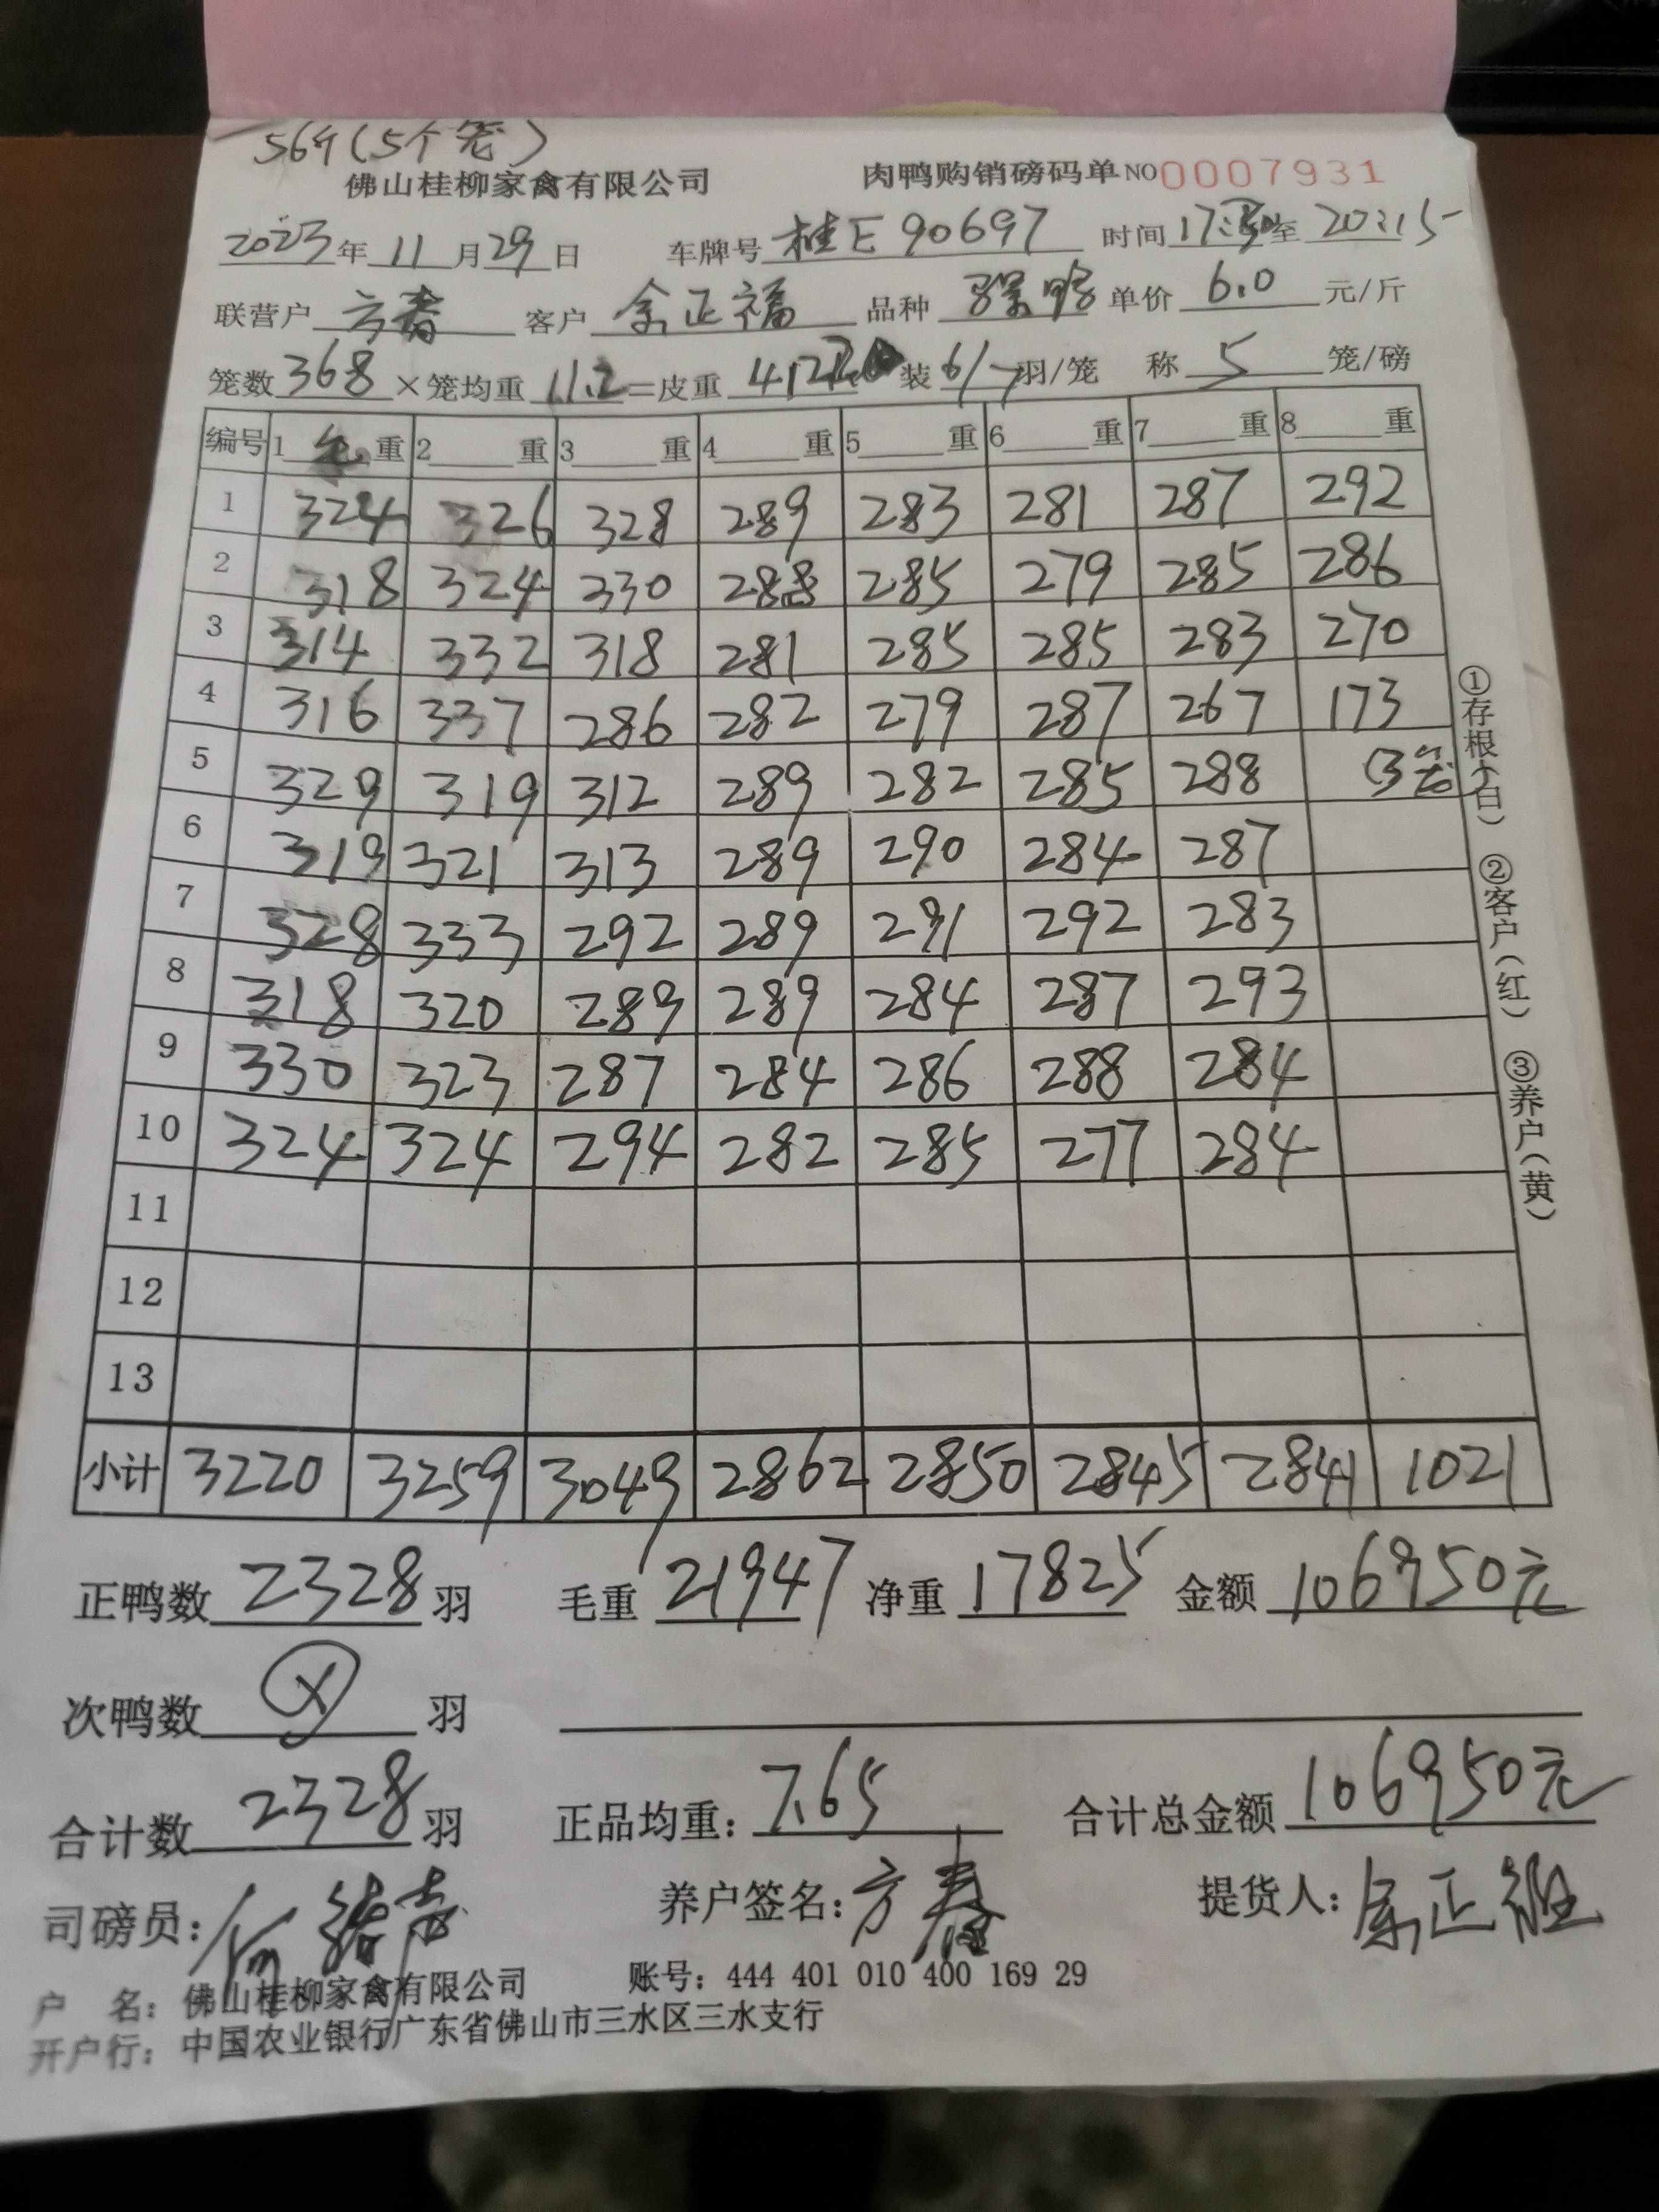 56斤(5个笼)
佛山桂柳家禽有限公司 肉鸭购销磅码单 NO 0007931
2023年11月29日 车牌号 桂E90697 时间 17: 至 20:15
联营户 方春 客户 余正福 品种 鸭 单价 6.0 元/斤
笼数 368 ×笼均重 11.2 =皮重 装 6/7 羽/笼 称 5 笼/磅
编号 1 毛 重 2 重 3 重 4 重 5 重 6 重 7 重 8 重
1 324 326 328 289 283 281 287 292
2 318 324 330 288 285 279 285 286
3 314 332 318 281 285 285 283 270
4 316 337 286 282 279 287 267 173
5 329 319 312 289 282 285 288 (3笼)
6 319 321 313 289 290 284 287
7 328 333 292 289 291 292 283
8 318 320 289 289 284 287 293
9 330 323 287 284 286 288 284
10 324 324 294 282 285 277 284
11
12
13
小计 3220 3259 3049 2862 2850 2845 2841 1021
正鸭数 2328 羽 毛重 21947 净重 17825 金额 106950元
次鸭数 X 羽
合计数 2328 羽 正品均重: 7.65 合计总金额 106950元
司磅员: 养户签名: 方春 提货人: 余正
户 名: 佛山桂柳家禽有限公司 账号: 444 401 010 400 169 29
开户行: 中国农业银行广东省佛山市三水区三水支行
①存根(白) ②客户(红) ③养户(黄)